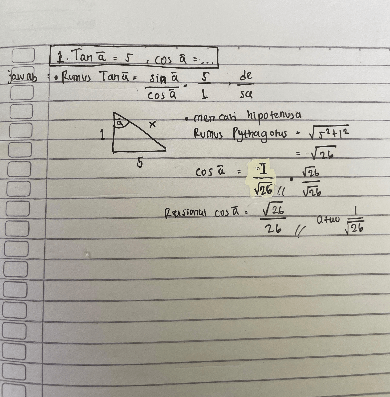 1. Tan ā = 5 , cos ā = ...
jawab : • Rumus Tan ā = sin ā / cos ā = 5 / 1 = de / sa
• mencari hipotenusa
Rumus Pythagoras = √5²+1²
= √26
1 ā x
5
cos ā = 1 / √26 // • √26 / √26
Rasional cos ā = √26 / 26 // atau 1 / √26